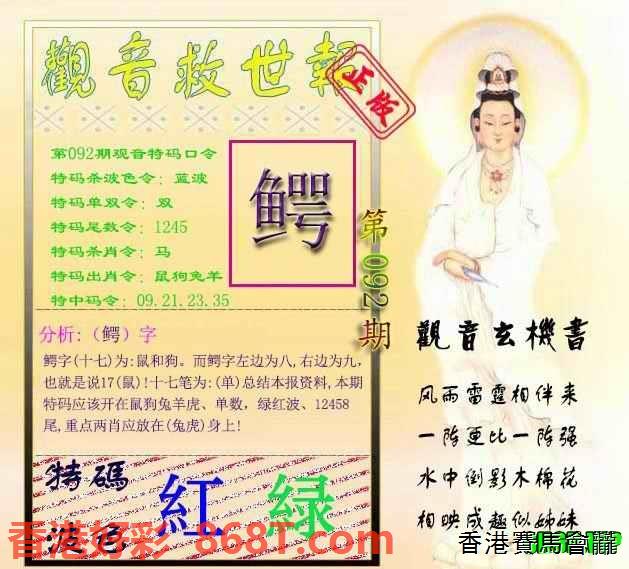 觀音救世報
正版
第092期观音特码口令
特码杀波色令：蓝波
特码单双令：双
特码尾数令：1245
特码杀肖令：马
特码出肖令：鼠狗兔羊
特中码令：09.21.23.35
鳄
第092期
分析:（鳄）字
鳄字(十七)为:鼠和狗。而鳄字左边为八,右边为九,
也就是说17(鼠)!十七笔为:(单)总结本报资料,本期
特码应该开在鼠狗兔羊虎、单数，绿红波、12458
尾,重点两肖应放在(兔虎)身上!
觀音玄機書
风雨雷霆相伴来
一阵更比一阵强
水中倒影木棉花
相映成趣似姊妹
特碼
波色
紅 绿
香港好彩 868T.com
香港賽馬會